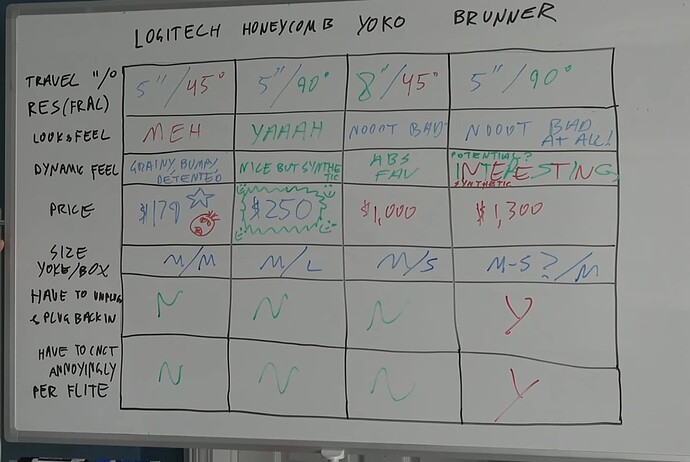 LOGITECH HONEYCOMB YOKO BRUNNER
TRAVEL "/° 5"/45° 5"/90° 8"/45° 5"/90°
RES(FRAL)
LOOK&FEEL MEH YAAAH NOOOT BAD NOOOT BAD
AT ALL!
DYNAMIC FEEL GRAINY, BUMPY, DETENTED NICE BUT SYNTHETIC ABS FAV POTENTIAL? INTERESTING SYNTHETIC
PRICE $179 $250 $1,000 $1,300
SIZE
YOKE/BOX M/M M/L M/S M-S?/M
HAVE TO UNPLUG
& PLUG BACK IN N N N Y
HAVE TO CNCT
ANNOYINGLY
PER FLITE N N N Y